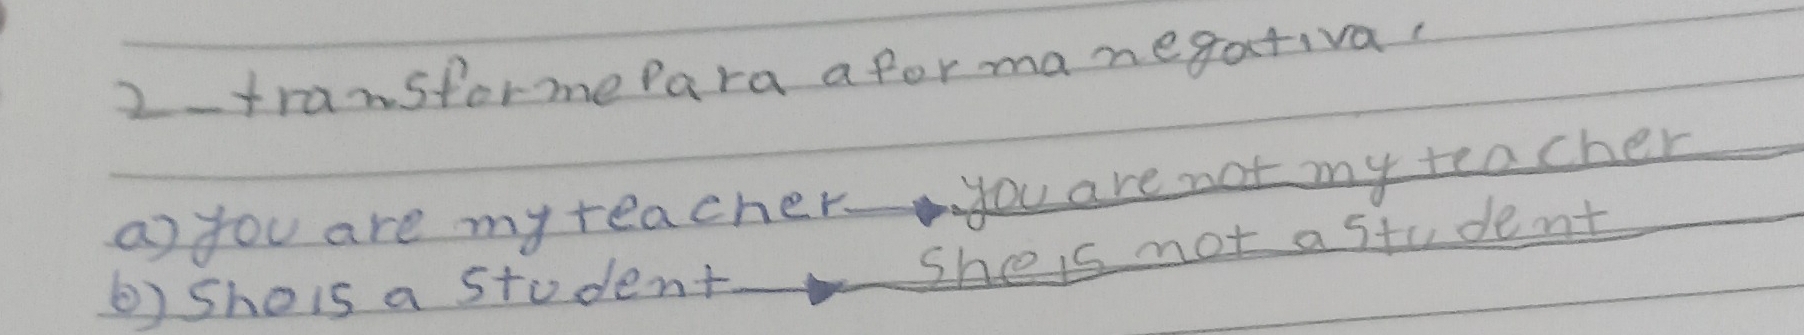 2-transforme para a forma negativa.
a) you are my teacher → you are not my teacher
b) She is a student → She is not a student